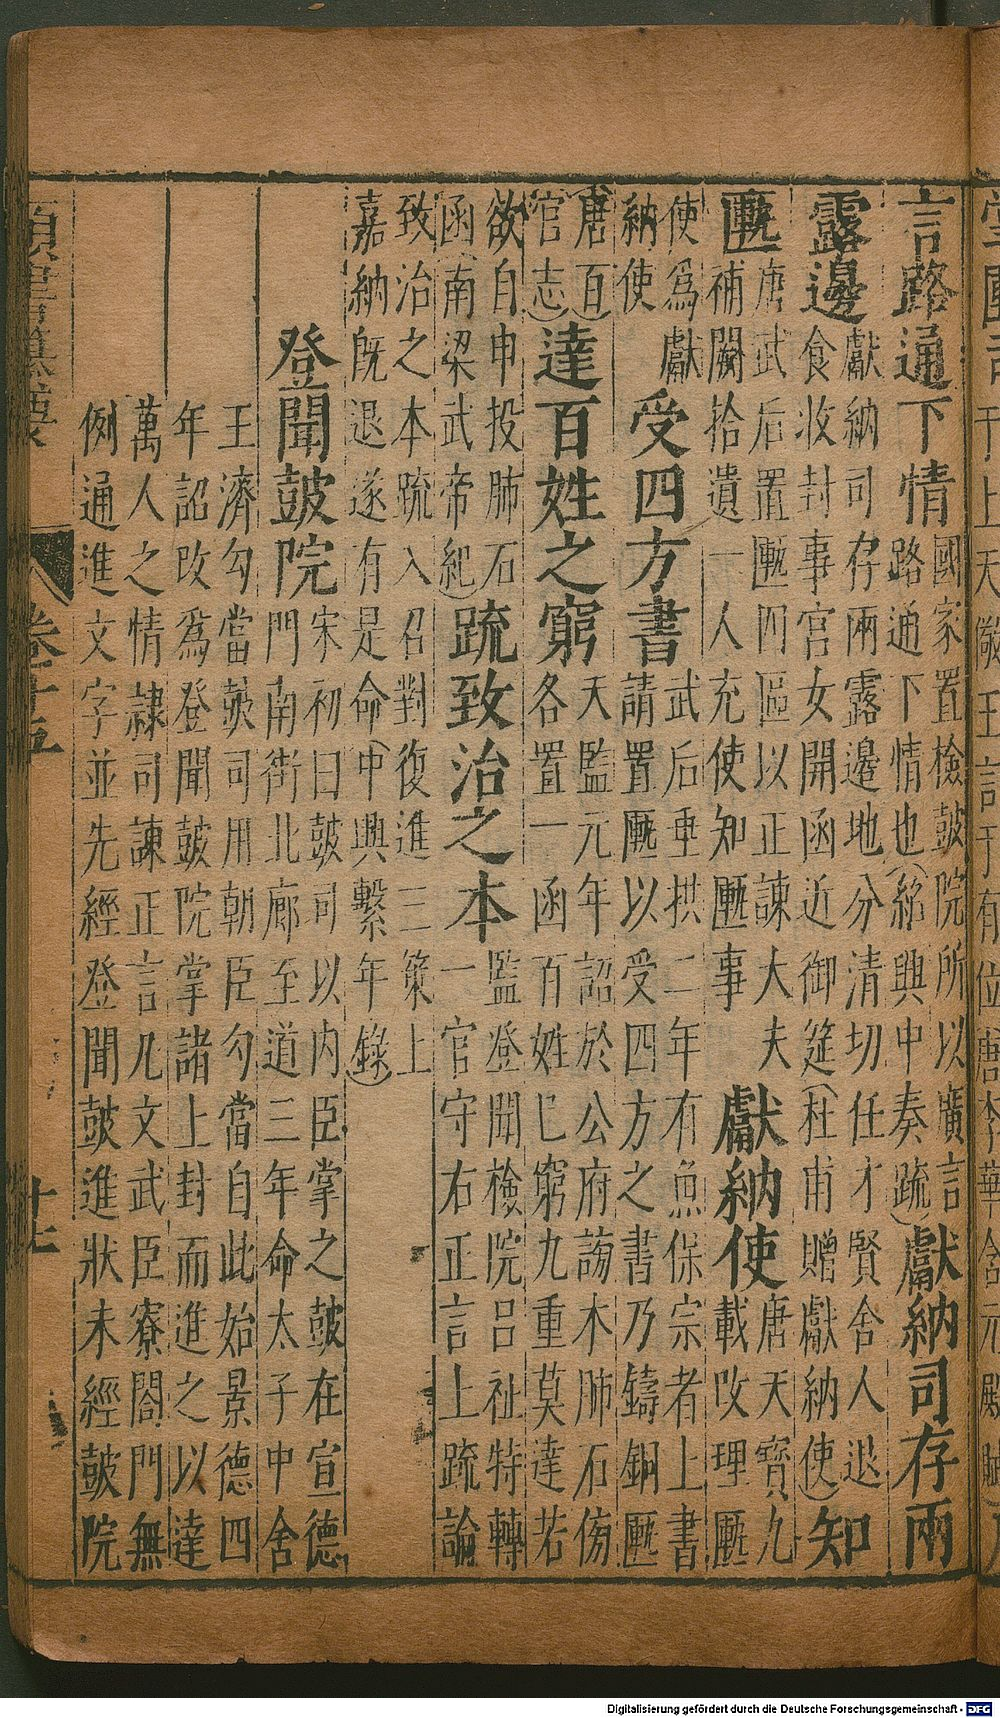 言路通下情
國家置檢鼓院所以廣言
路通下情也(紹興中奏疏)
獻納司存兩
露邊
獻納司存兩露邊地分清切任才賢舍人退
食收封事宮女開函近御筵(杜甫贈獻納使)
知
匭
唐武后置匭四區以正諫大夫
補闕拾遺一人充使知匭事
獻納使
唐天寶九
載改理匭
使爲獻
納使
受四方書
武后垂拱二年有魚保宗者上書
請置匭以受四方之書乃鑄銅匭
(唐百
官志)
達百姓之窮
天監元年詔於公府謗木肺石傍
各置一函百姓已窮九重莫達若
欲自申投肺石
函(南梁武帝紀)
疏致治之本
監登聞檢院呂祉特轉
一官守右正言上疏論
致治之本疏入召對復進三策上
嘉納旣退遂有是命(中興繫年錄)
登聞鼓院
宋初曰鼓司以内臣掌之鼓在宣德
門南街北廊至道三年命太子中舍
王濟勾當鼓司用朝臣勾當自此始景德四
年詔改爲登聞鼓院掌諸上封而進之以達
萬人之情隷司諫正言凡文武臣寮閤門無
例通進文字並先經登聞鼓進狀未經鼓院
卷十五
十七
Digitalisierung gefördert durch die Deutsche Forschungsgemeinschaft - DFG